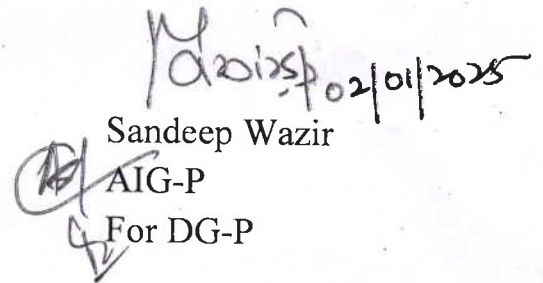 02/01/2025
Sandeep Wazir
AIG-P
For DG-P